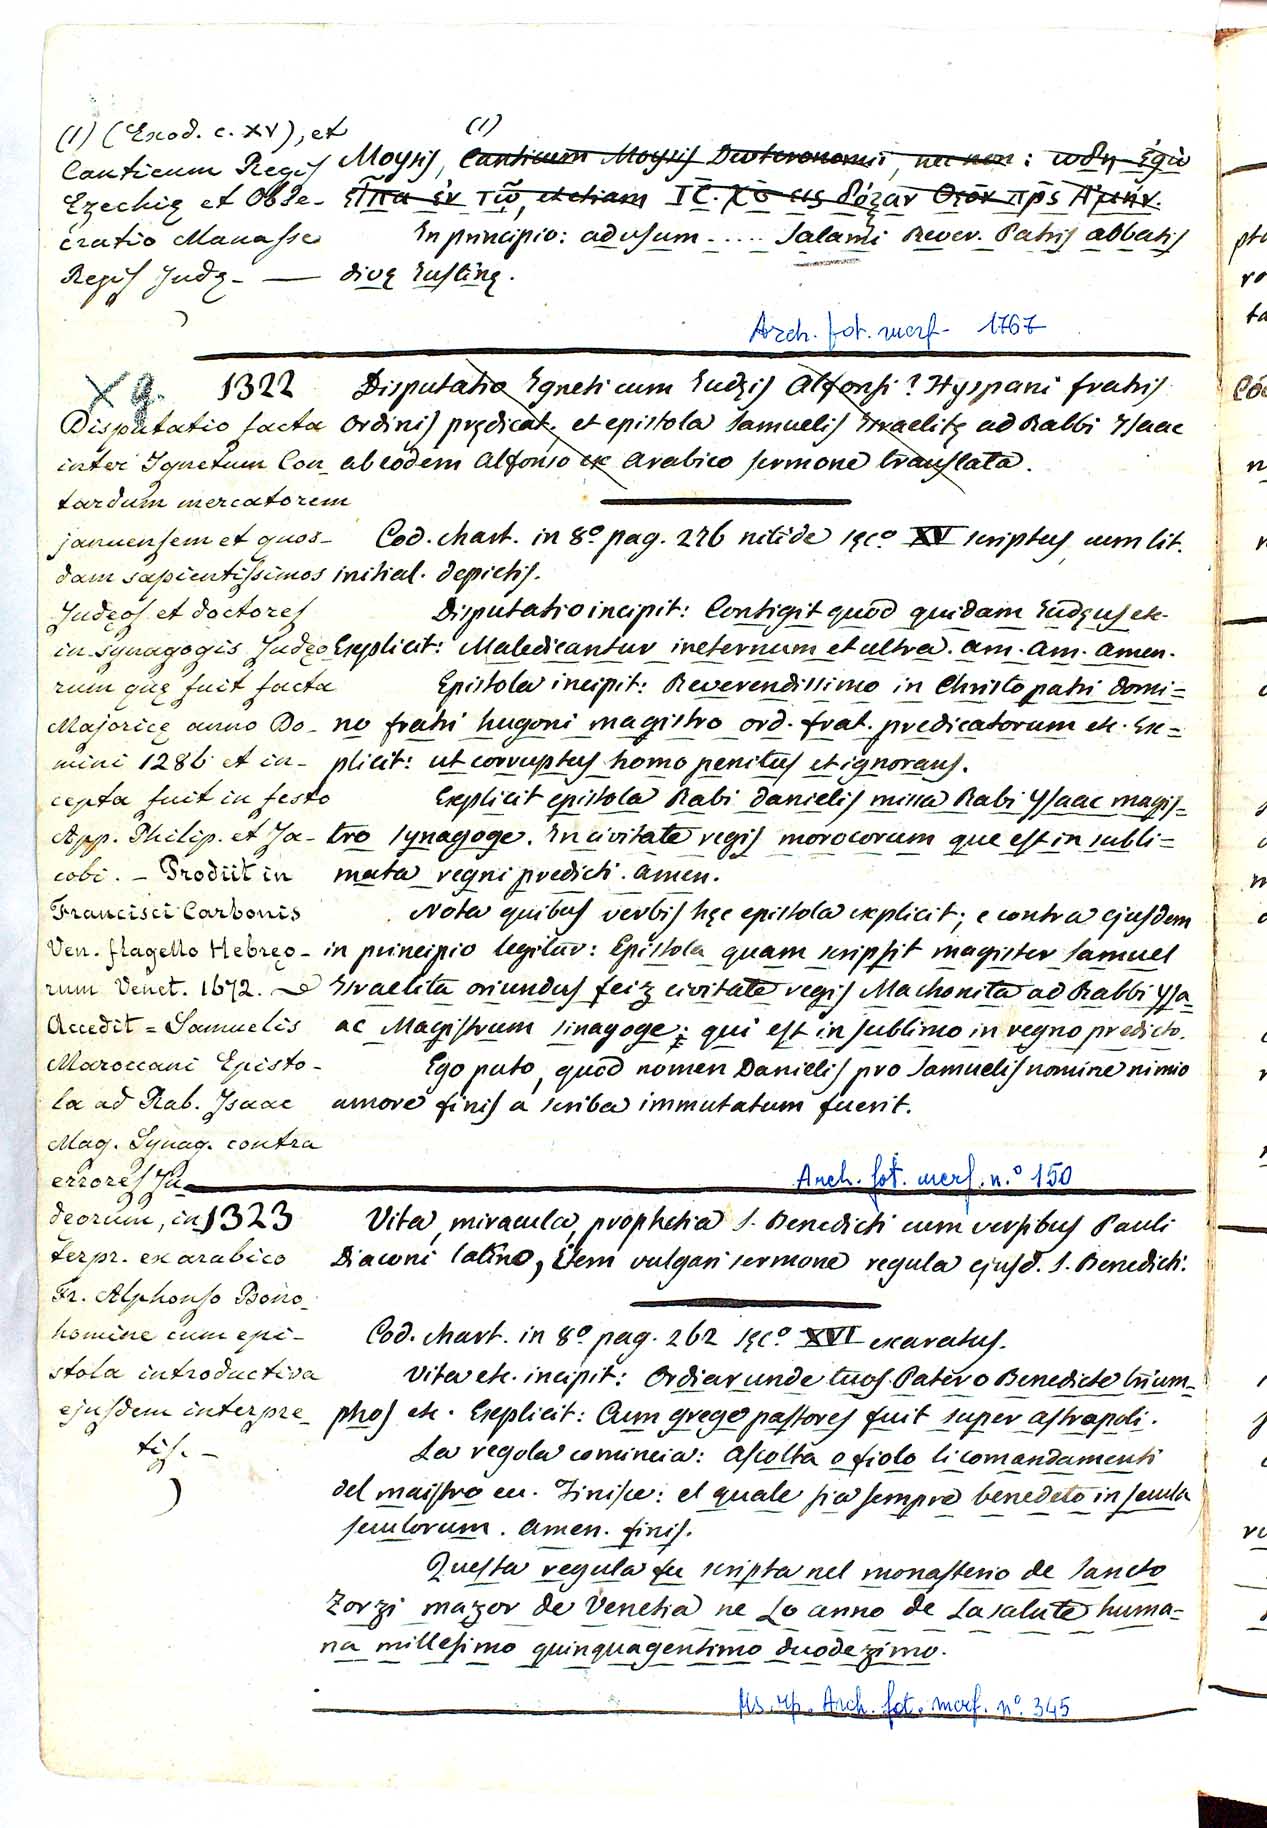 (1) (Exod. c. XV), et
Canticum Regis
Ezechię et Obse-
cratio Manasse
Regis Judę -
(1)
Moysis, Canticum Moysis Deuteronomii, nec non : ωδη
εις δόξαν Θεον πρς Αμήν.
In principio: ad usum ..... Salandi Rever. Patris abbatis
divę Iustinę.
Arch. fot. marf. 1767
X g. 1322
Disputatio facta
inter Ignetum Con-
tardum mercatorem
januensem et quos-
dam sapientissimos
Judęos et doctores
in synagogis Judęo
rum quę fuit facta
Majoricę anno Do-
mini 1286 et in-
cepta fuit in festo
App. Philip. et Ja-
cobi. - Prodiit in
Francisci Carbonis
Ven. flagello Hebręo-
rum Venet. 1672.
Accedit = Samuelis
Maroccani Episto-
la ad Rab. Isaac
Mag. Synag. contra
errores Ju-
deorum, in
terpr. ex arabico
Fr. Alphonso Bono-
homine cum epi-
stola introductiva
ejusdem interpre-
tis. -
Disputatio Igneti cum Iudęis Alfonsi? Hyspani fratris
ordinis prędicat., et epistola Samuelis Israelitę ad Rabbi Ysaac
ab eodem Alfonso ex Arabico sermone translata.
Cod. chart. in 8º pag. 276 nitide sęcº XV scriptus, cum lit.
initial. depictis.
Disputatio incipit: Contigit quod quidam Iudęus etc.
Explicit: Maledicantur in eternum et ultra. am. am. amen.
Epistola incipit: Reverendissimo in Christo patri domi=
no fratri hugoni magistro ord. frat. predicatorum etc. Ex=
plicit: ut corruptus homo penitus et ignorans.
Explicit epistola Rabi Danielis missa Rabi Ysaac magis-
tro synagoge. In civitate regis morocorum que est in subli=
mata regni predicti. amen.
Nota quibus verbis hęc epistola explicit; e contra ejusdem
in principio legitur: Epistola quam scripsit magister Samuel
Israelita oriundus feiz civitate regis Machonita ad Rabbi Ysa-
ac Magistrum sinagoge: qui est in sublimo in regno predicto.
Ego puto, quod nomen Danielis pro Samuelis nomine nimio
amore finis a scriba immutatum fuerit.
Arch. fot. marf. n.º 150
1323 Vita, miracula, prophetia S. Benedicti cum versibus Pauli
Diaconi latine, Item vulgari sermone regula ejusd. S. Benedicti.
Cod. chart. in 8º pag. 262 sęcº XVI exaratus.
Vita etc. incipit: Ordiar unde tuos Pater o Benedicte trium-
phos etc. Explicit: Cum grege pastores fuit super astrapoli.
La regola comincia: Ascolta o fiolo li comandamenti
del maistro ec. Finisce: el quale sia sempre benedeto in secula
seculorum. Amen. finis.
Questa regula fu scripta nel monasterio de Sancto
Zorzi mazor de Venetia ne Lo anno de La salute huma=
na millesimo quinquagentimo duodezimo.
Ms. rip. Arch. fot. marf. nº. 345